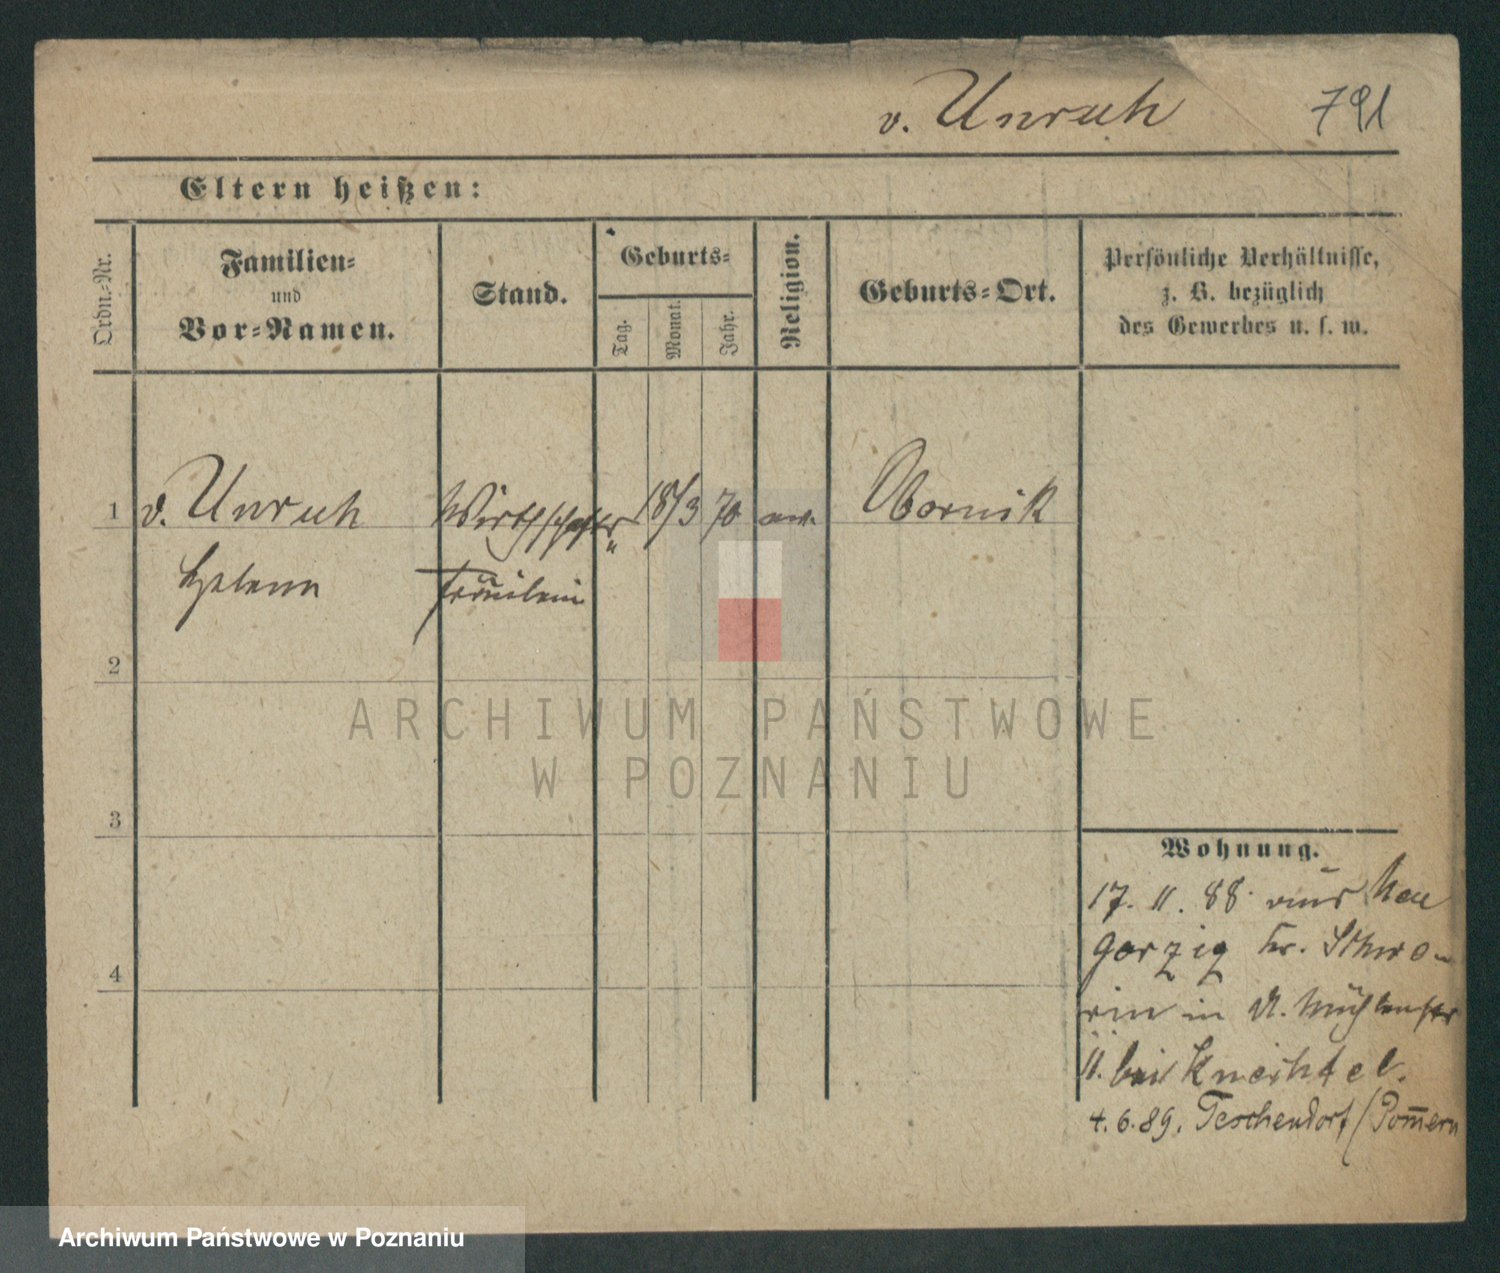 v. Unruh 791
Eltern heißen:
Ordn.-Nr.
Familien-
und
Vor-Namen.
Stand.
Geburts-
Tag.
Monat.
Jahr.
Religion.
Geburts-Ort.
Persönliche Verhältnisse,
z. B. bezüglich
des Gewerbes u. s. w.
1 v. Unruh Wirthschafts- 18/3 70 ev. Obornik
Helene Fräulein
2
ARCHIWUM PAŃSTWOWE
W POZNANIU
3
4
Wohnung.
17. 11. 88 aus Neu
Gorzig Kr. Schwe-
rin in Mühlenstr
11. bei Knechtel.
4. 6. 89. Teschendorf/Pom̅ern
Archiwum Państwowe w Poznaniu